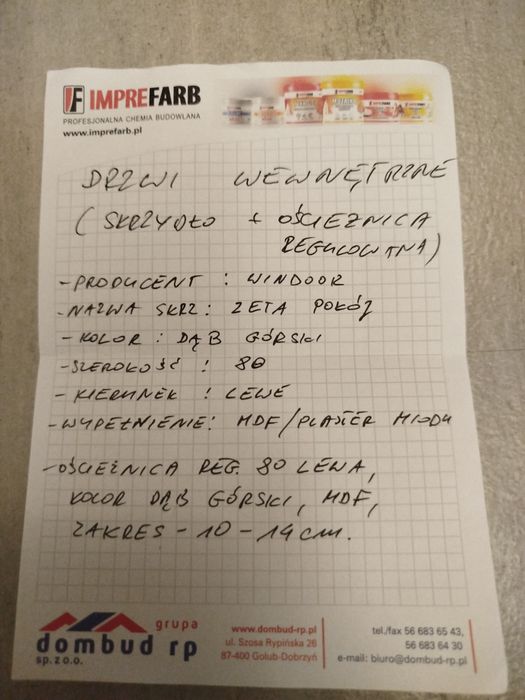 IMPREFARB
PROFESJONALNA CHEMIA BUDOWLANA
www.imprefarb.pl
DRZWI WEWNĘTRZNE
(SKRZYDŁO + OŚCIEŻNICA
REGULOWANA)
- PRODUCENT : WINDOOR
- NAZWA SKRZ: ZETA POKÓJ
- KOLOR : DĄB GÓRSKI
- SZEROKOŚĆ : 80
- KIERUNEK : LEWE
- WYPEŁNIENIE: MDF/PLASTER MIODU
- OŚCIEŻNICA REG. 80 LEWA,
KOLOR DĄB GÓRSKI, MDF,
ZAKRES - 10 - 14 cm.
grupa
dombud rp
sp. z o.o.
www.dombud-rp.pl
ul. Szosa Rypińska 26
87-400 Golub-Dobrzyń
tel./fax 56 683 65 43,
56 683 64 30
e-mail: biuro@dombud-rp.pl